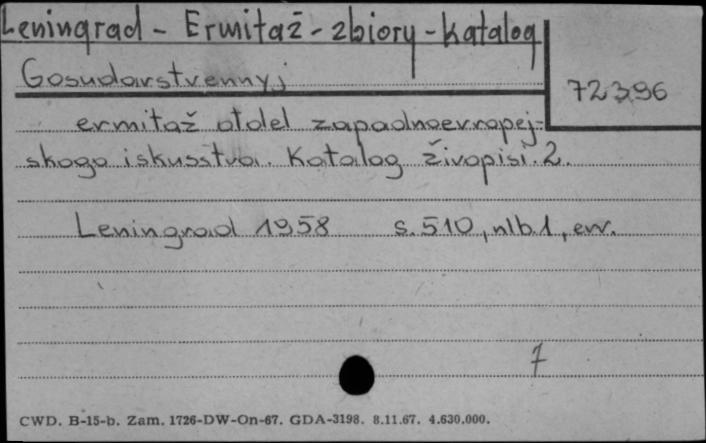 Leningrad - Ermitaż - zbiory - katalog
Gosudarstvennyj
72396
ermitaž otdel zapadnoevropej-
skogo iskusstva. Katalog živopisi. 2.
Leningrad 1958 s. 510, nlb. 1, err.
7
CWD. B-15-b. Zam. 1726-DW-On-67. GDA-3198. 8.11.67. 4.630.000.